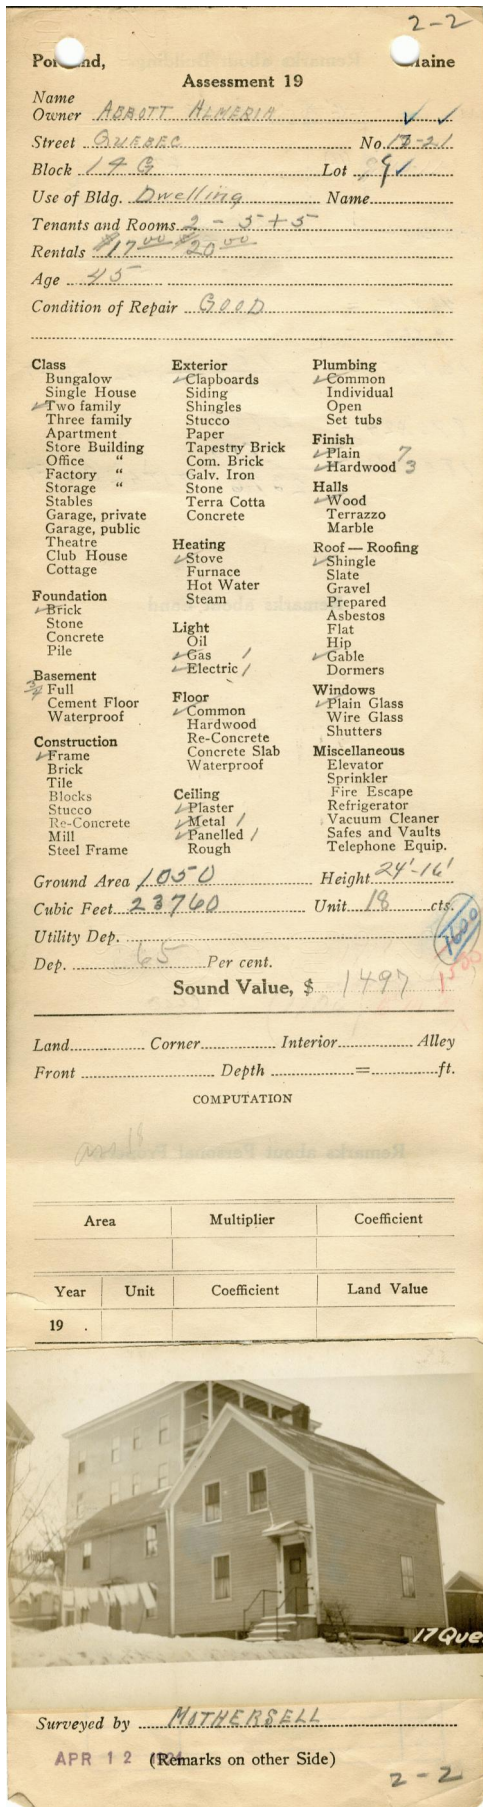 2-2
Portland, Maine
Assessment 19
Name
Owner ABBOTT ALMERIA
Street QUEBEC No. 17-21
Block 14 G Lot 9
Use of Bldg. Dwelling Name
Tenants and Rooms 2 - 5+5
Rentals $17.00 $20.00
Age 45
Condition of Repair GOOD
Class
Bungalow
Single House
✓Two family
Three family
Apartment
Store Building
Office "
Factory "
Storage "
Stables
Garage, private
Garage, public
Theatre
Club House
Cottage
Foundation
✓Brick
Stone
Concrete
Pile
Basement
3/4 Full
Cement Floor
Waterproof
Construction
✓Frame
Brick
Tile
Blocks
Stucco
Re-Concrete
Mill
Steel Frame
Exterior
✓Clapboards
Siding
Shingles
Stucco
Paper
Tapestry Brick
Com. Brick
Galv. Iron
Stone
Terra Cotta
Concrete
Heating
✓Stove
Furnace
Hot Water
Steam
Light
Oil
✓Gas 1
✓Electric 1
Floor
✓Common
Hardwood
Re-Concrete
Concrete Slab
Waterproof
Ceiling
✓Plaster
✓Metal 1
✓Panelled 1
Rough
Plumbing
✓Common
Individual
Open
Set tubs
Finish
✓Plain 7
✓Hardwood 3
Halls
✓Wood
Terrazzo
Marble
Roof — Roofing
✓Shingle
Slate
Gravel
Prepared
Asbestos
Flat
Hip
✓Gable
Dormers
Windows
✓Plain Glass
Wire Glass
Shutters
Miscellaneous
Elevator
Sprinkler
Fire Escape
Refrigerator
Vacuum Cleaner
Safes and Vaults
Telephone Equip.
Ground Area 1050 Height 24'-16'
Cubic Feet 23760 Unit 18 cts.
1600
Utility Dep.
Dep. 65 Per cent.
1500
Sound Value, $ 1497
Land Corner Interior Alley
Front Depth = ft.
COMPUTATION
Area Multiplier Coefficient
Year Unit Coefficient Land Value
19 .
17 Que
Surveyed by MOTHERSELL
APR 12 (Remarks on other Side)
2-2